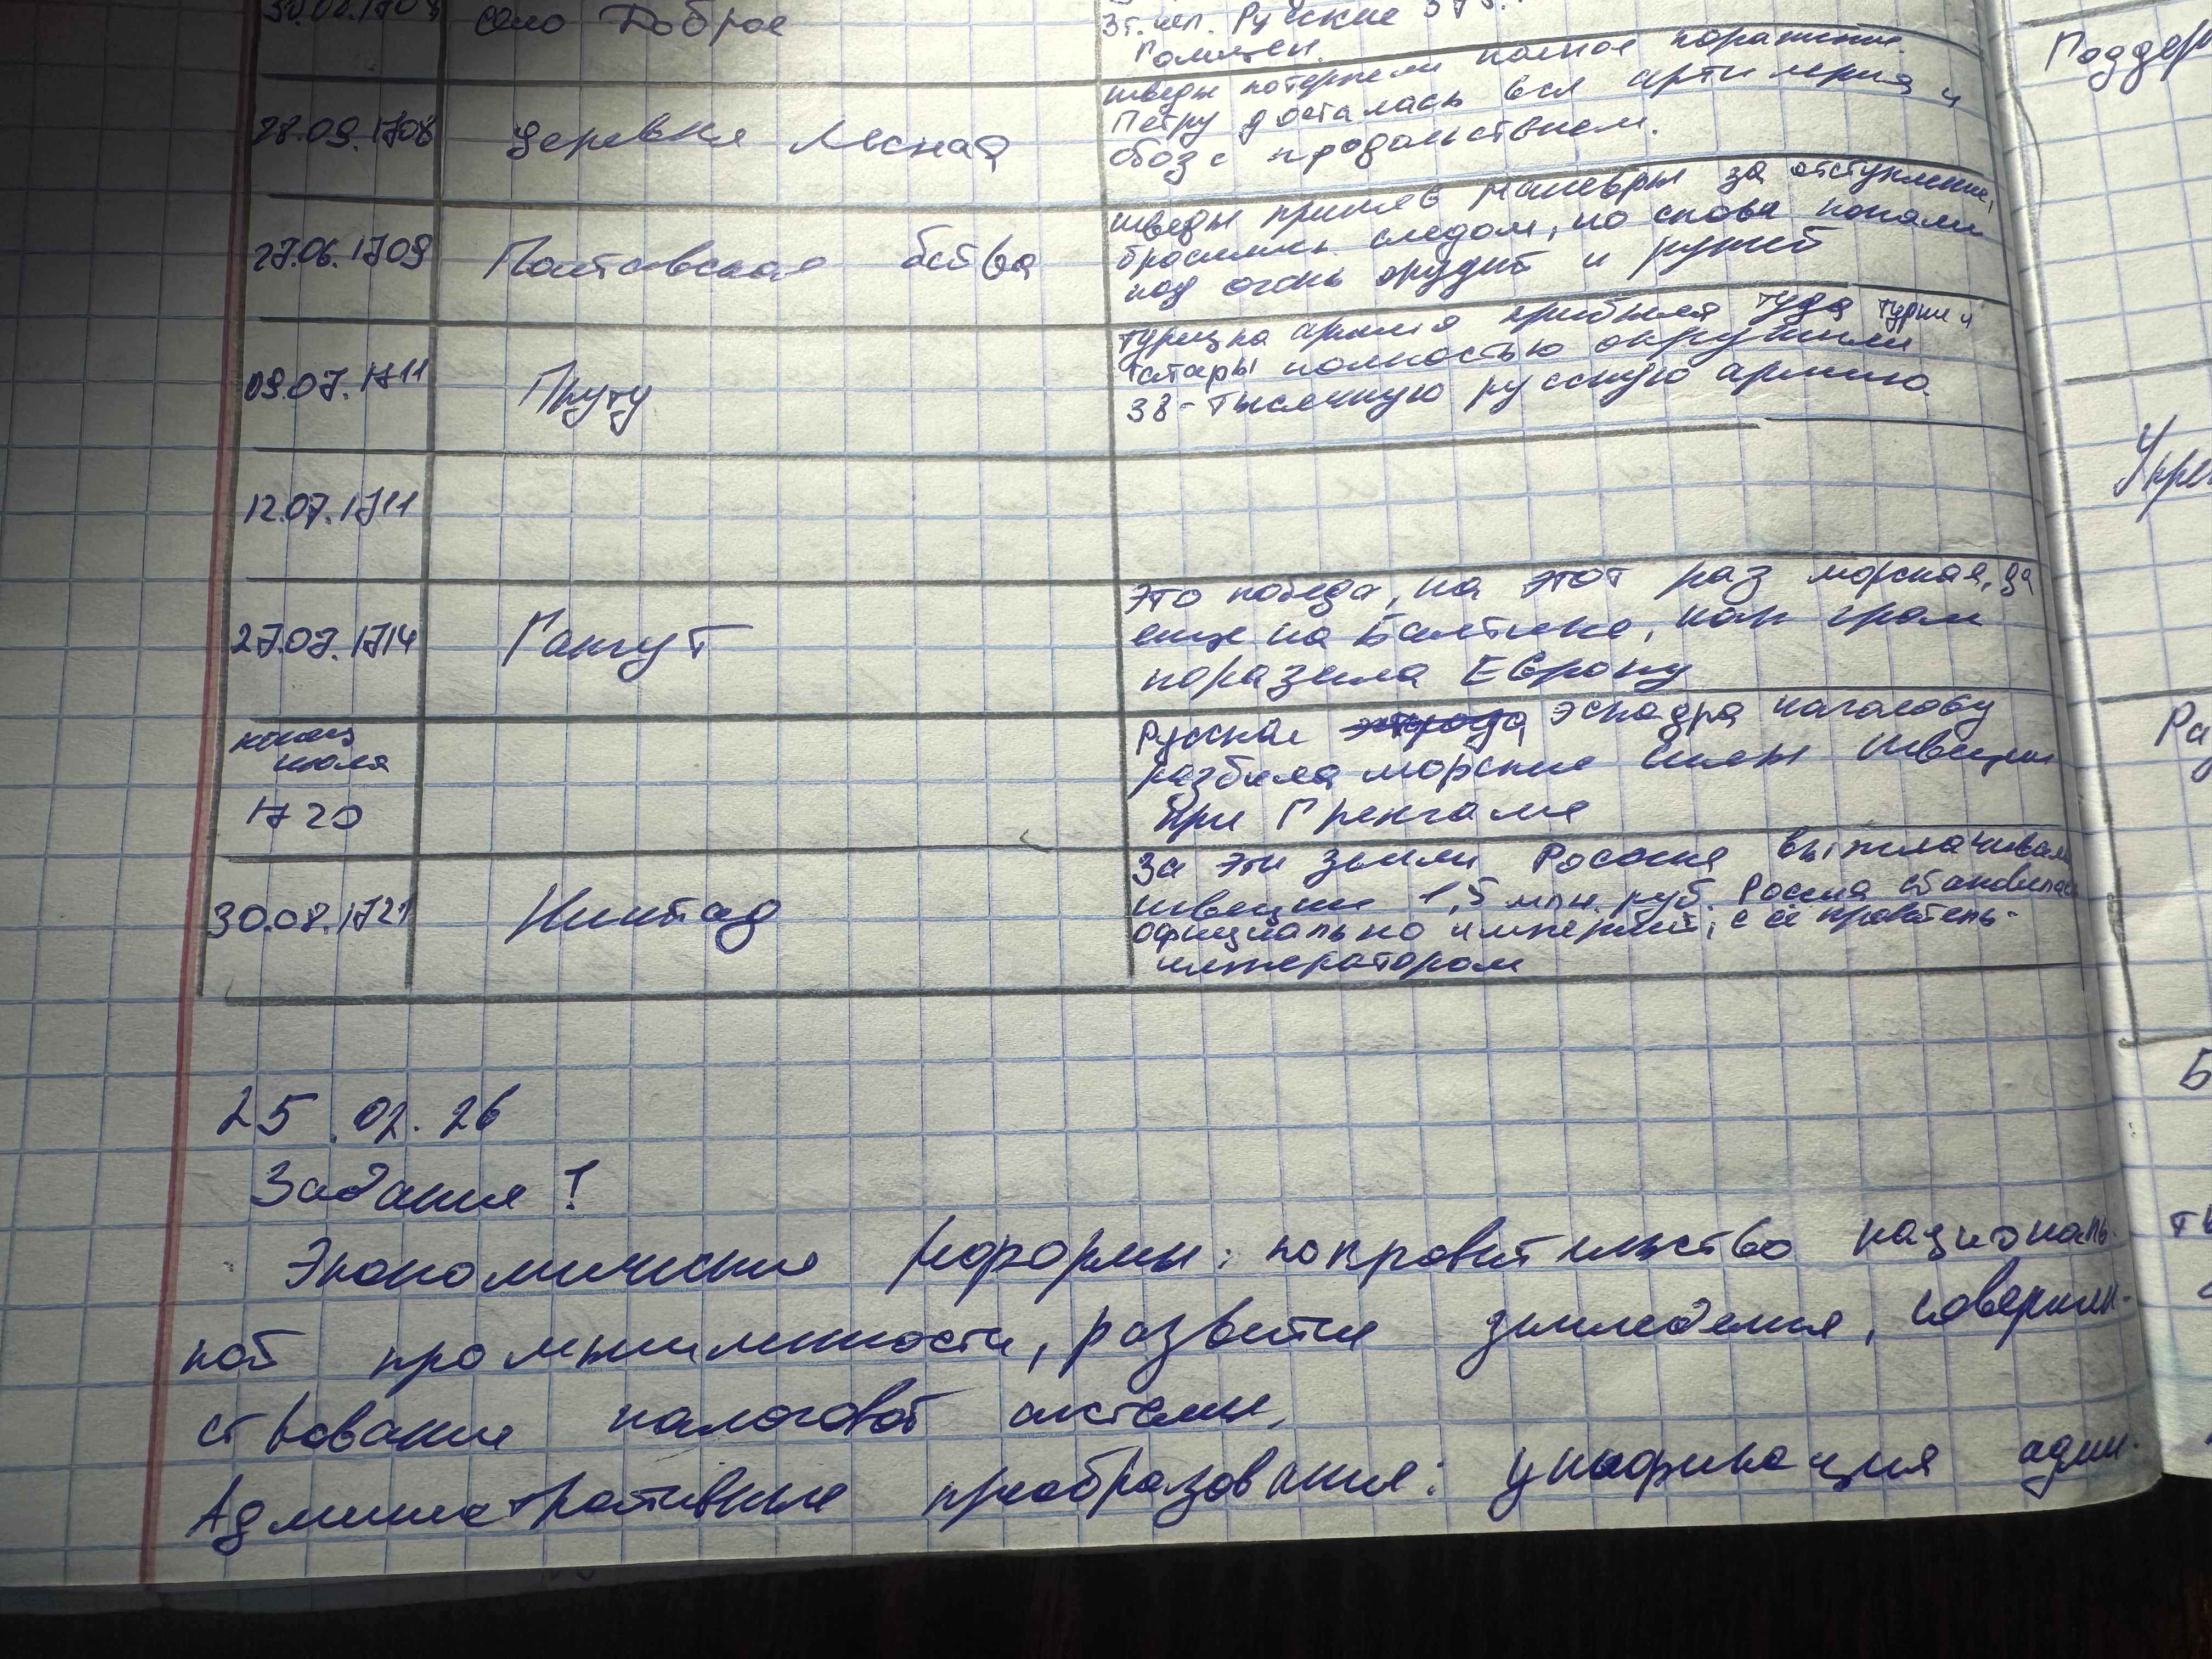 30.08.1708
село Доброе
3т. чел. Русские 375.
Голицын.
28.09.1708
деревня Лесная
шведы потерпели полное поражение.
Петру досталась вся артилерия и
обоз с продовольствием.
27.06.1709
Полтавская битва
шведы приняв маневры за отступление,
бросились следом, но снова попали
под огонь орудий и ружей
09.07.1711
Пруту
турецка армия прибыла туда турки и
татары полностью окружили
38-тысячную русскую армию.
12.07.1711
27.07.1714
Гангут
Это победа, на этот раз морская, да
еще на Балтике, как гром
поразила Европу
конец
июля
1720
Русская эскадра наголову
разбила морские силы Швеции
при Гренгаме
30.08.1721
Ништад
За эти земли Россия выплачивала
швеции 1,5 млн. руб. Россия становилась
официально империей, а её правитель-
императором
25.02.26
Задание 1
Экономические реформы: покровительство националь-
ной промышленности, развитие земледелия, совершен-
ствование налоговой системы.
Административные преобразования: унификация адми-
Поддер
Укре
Ра
Б